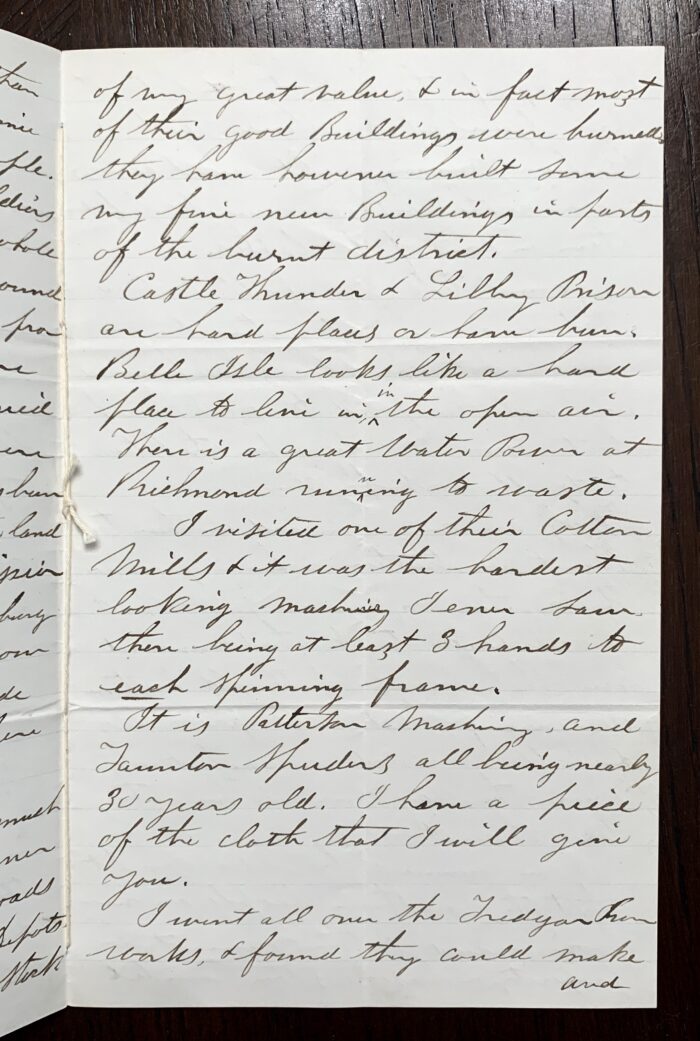 of my great value, & in fact most
of their good Buildings were burned,
they have however built some
my fine new Buildings in parts
of the burnt district.
Castle Thunder & Libby Prison
are hard places or have been.
Belle Isle looks like a hard
place to live in, in the open air.
There is a great Water Power at
Richmond running to waste.
I visited one of their Cotton
Mills & it was the hardest
looking mashinery I ever saw
there being at least 3 hands to
each spinning frame.
It is Patterson Mashinery, and
Taunton Speeders all being nearly
30 years old. I have a piece
of the cloth that I will give
you.
I went all over the Tredgar Iron
works, & found they could make
and
than
ple.
ldiers
whole
ound
land
burg
much
ner
oads
Depots
Stock